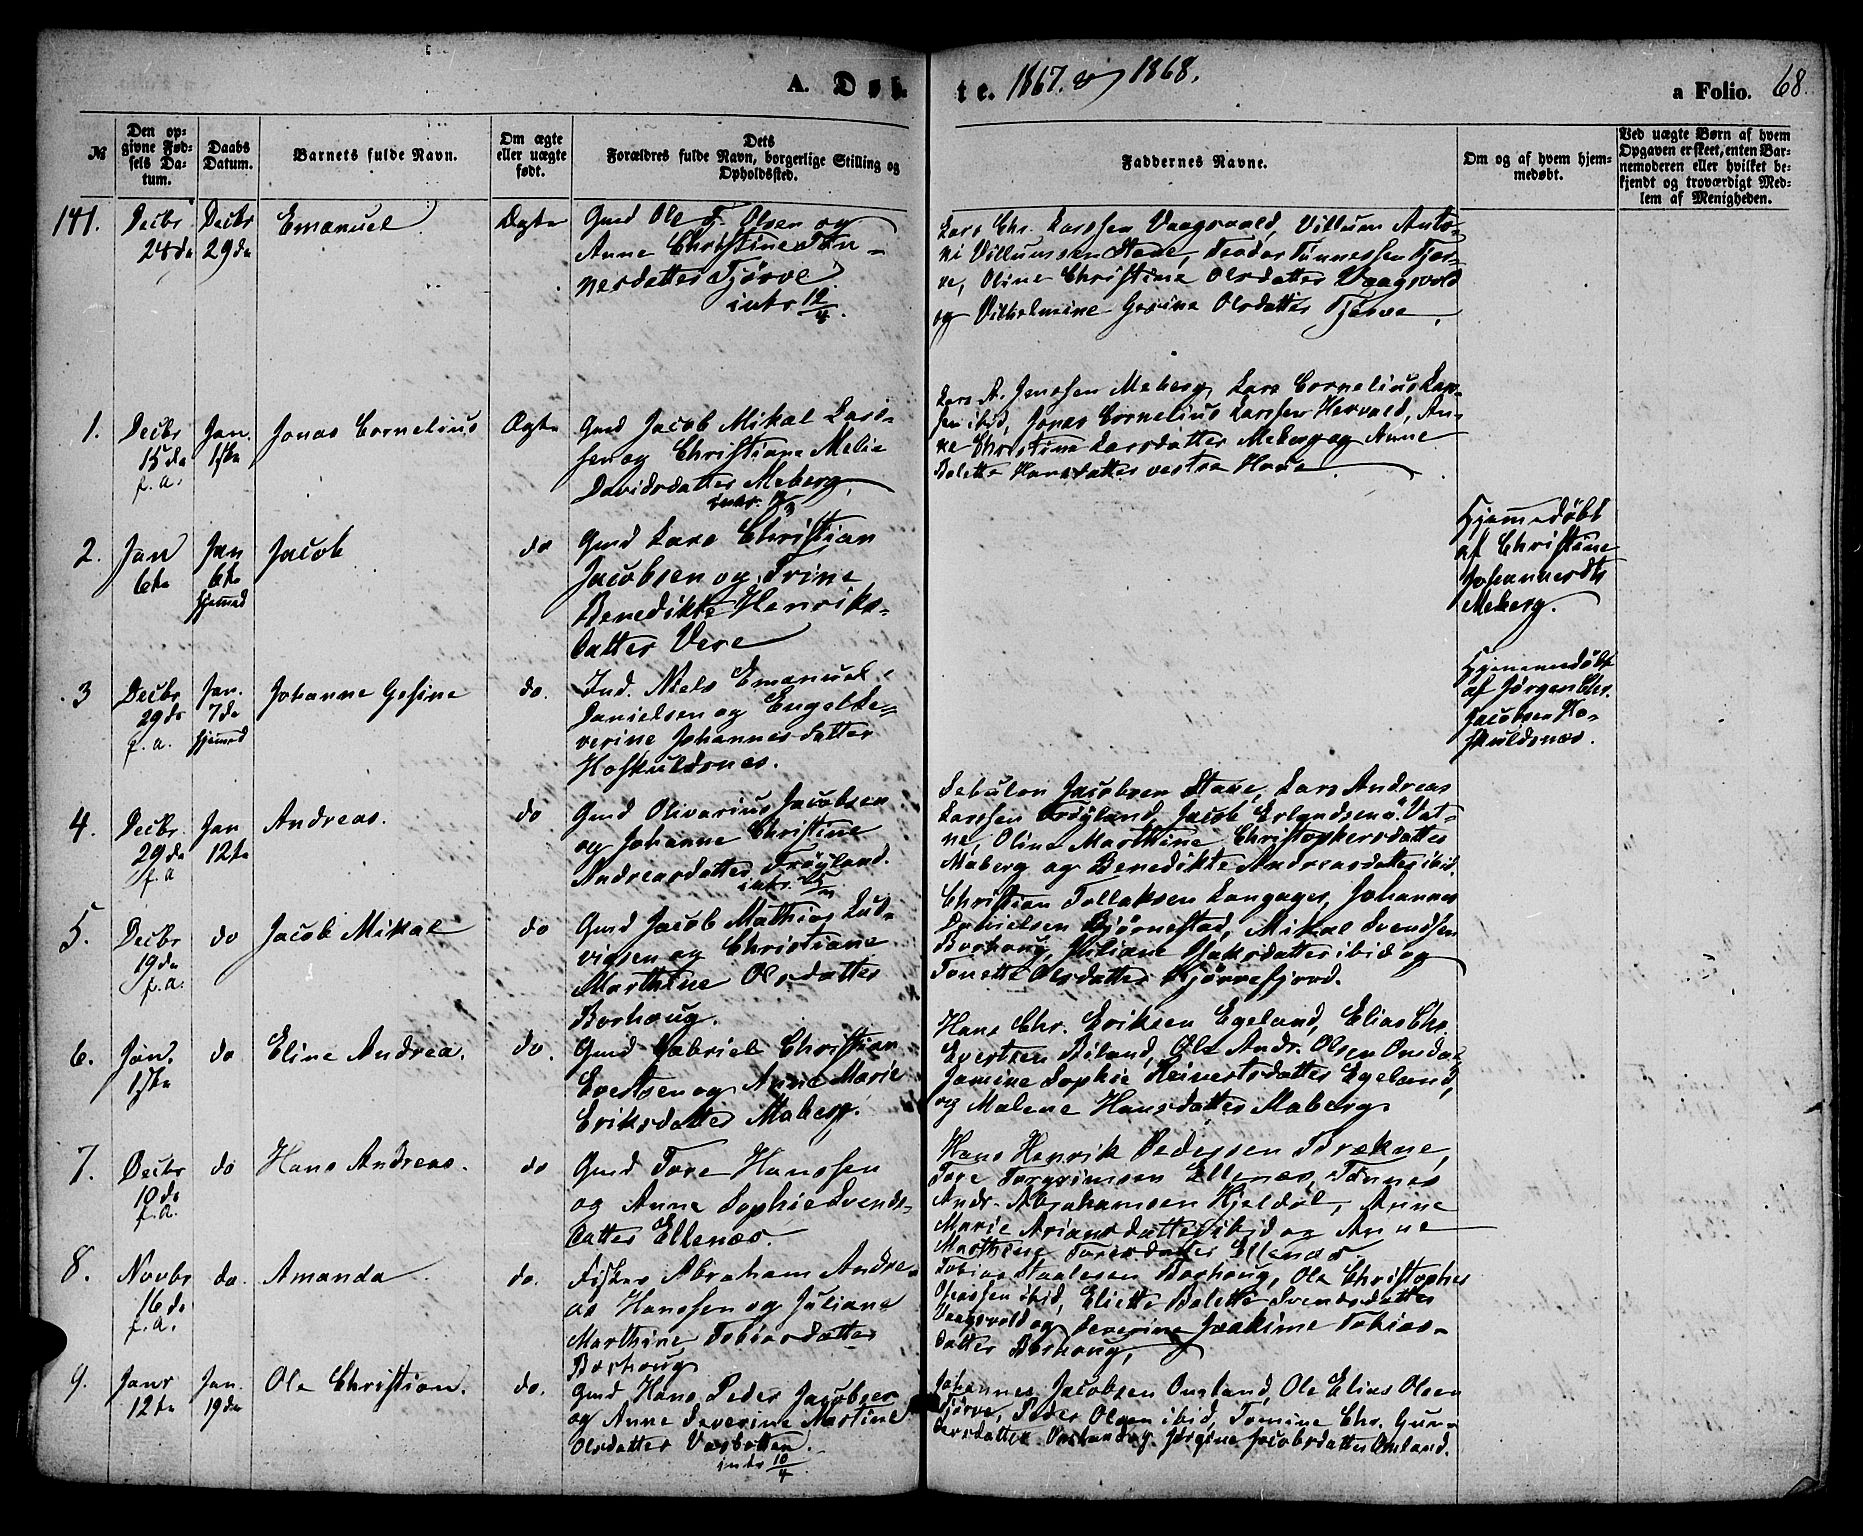 A. Døbte. 1867. og 1868.
a Folio. 68.
№
Den op-
givne Fød-
sels Da-
tum.
Daabs
Datum.
Barnets fulde Navn.
Om ægte
eller uægte
født.
Dets
Forældres fulde Navn, borgerlige Stilling og
Opholdssted.
Faddernes Navne.
Om og af hvem hjem-
medøbt.
Ved uægte Børn af hvem
Opgaven er skeet, enten Bar-
nemoderen eller hvilket be-
kjendt og troværdigt Med-
lem af Menigheden.
141.
Decbr
24de
Decbr
29de
Emanuel
Ægte
Gmd Ole T. Olsen og
Anne Christine Tøn-
nesdatter Tjørve
intr 12/4.
Lars Chr. Larssen Vaagsvold, Villum Anto-
ni Villumssen Stave, Teodor Tønnessen Tjør-
ve, Oline Christine Olsdatter Vaagsvold
og Vilhelmine Gesine Olsdatter Tjørve.
1.
Decbr
15de
f. a.
Jan.
1ste
Jonas Cornelius
Ægte
Gmd Jacob Mikal Lars-
sen og Christiane Melie
Davidsdatter Meberg
intr.
Lars A. Jenssen Meberg, Lars Cornelius Lars-
sen ibid, Jonas Cornelius Larssen Hervold, An-
ne Christine Larsdatter Meberg og Anne
Bolette Hansdatter vestre Haue
2.
Jan
6te
Jan
6te
hjemmed
Jacob
do
Gmd Lars Christian
Jacobsen og Trine
Benedikte Henriks-
datter Vere
Hjemmedøbt
af Christine
Johannesdtr
Meberg.
3
Decbr
29de
f. a.
Jan.
7de
hjemmed
Johanne Gesine
do.
Ind. Niels Emanuel
Danielsen og Engel Se-
verine Johannesdatter
Hoskuldsnes.
Hjemmedøbt
af Jørgen Chr.
Jacobsen Ho-
skuldsnæs.
4.
Decbr.
29de
f. a
Jan
12te
Andreas.
do
Gmd Olivarius Jacobsen
og Johanne Christine
Andreasdatter Frøyland.
intr.
Sebulon Jacobsen Stave, Lars Andreas
Larssen Frøyland, Jacob Erlandsen ö. Vat-
ne, Oline Marthine Christophersdatter
Maberg og Benedikte Andreasdatter ibid.
5.
Decbr
19de
f. a.
do
Jacob Mikal
do
Gmd Jacob Mathias Lud-
vigsen og Christiane
Marthine Olsdatter
Borhaug.
Christian Tollaksen Langager, Johannes
Danielsen Bjørnestad, Mikal Svendsen
Borhaug, Juliane Isaksdatter ibid og
Tonette Olsdatter Kjørrefjord.
6.
Jan.
1ste
do
Eline Andrea.
do.
Gmd Gabriel Christian
Evertsen og Anne Marie
Eriksdatter Maberg.
Hans Chr. Eriksen Egeland, Elias Chr.
Evertsen Røiland, Ole Andr. Olsen Omdal,
Jomine Sophie Reinertsdatter Egeland,
og Malene Hansdatter Maberg
7.
Decbr
10de
f. a.
do
Hans Andreas.
do
Gmd Tore Hanssen
og Anne Sophie Svends-
datter Ellenæs.
Hans Henrik Pederssen Brækne,
Tore Torgrimsen Ellenæs, Tønnes
Andr. Abrahamsen Hjeldøl, Anne
Marie Ariansdatter ibid og Anne
Marthine Toresdatter Ellenæs
8.
Novbr
16de
f. a.
do
Amanda
do.
Fisker Abraham Andre-
as Hanssen og Juliane
Marthine Tobiasdatter
Borhaug
Tobias Staalesen Borhaug, Ole Christopher
Osmssen ibid, Eliette Bolette Svendsdatter
Vaagsvold og Severine Joakime Tobias-
datter Borhaug,
9.
Janr
12te
Jan.
19de
Ole Christian.
do.
Gmd Hans Peder Jacobsen
og Anne Severine Martine
Olsdatter Vasbotten.
intr 10/4
Johannes Jacobsen Omland, Ole Elias Olsen
Tjørve, Peder Olsen ibid, Tomine Chr. Gun-
dersdatter Østhandog Jørgine Jacobsdatter Omland.